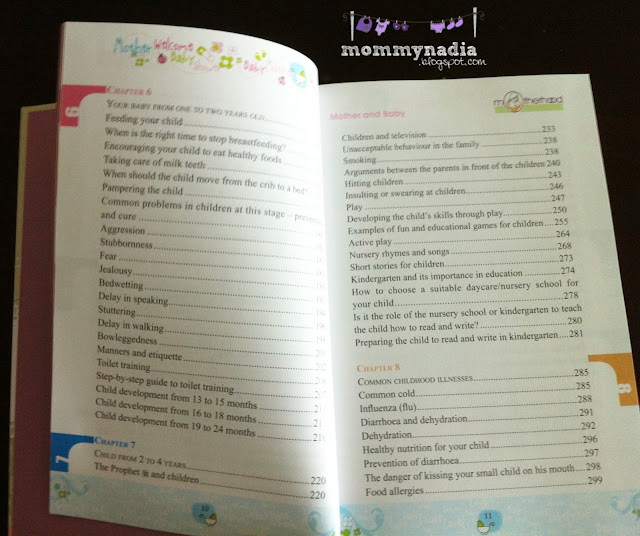 mommynadia
.blogspot.com
Mother Welcome
Baby
CHAPTER 6
6
YOUR BABY FROM ONE TO TWO YEARS OLD
Feeding your child
When is the right time to stop breastfeeding?
Encouraging your child to eat healthy foods
Taking care of milk teeth
When should the child move from the crib to a bed?
Pampering the child
Common problems in children at this stage –
and cure
Aggression
Stubbornness
Fear
Jealousy
Bedwetting
Delay in speaking
Stuttering
Delay in walking
Bowleggedness
Manners and etiquette
Toilet training
Step-by-step guide to toilet training
Child development from 13 to 15 months
Child development from 16 to 18 months
Child development from 19 to 24 months
CHAPTER 7
7
CHILD FROM 2 TO 4 YEARS 220
The Prophet ﷺ and children 220
10
Mother and Baby
motherhood
Children and television 233
Unacceptable behaviour in the family 238
Smoking 238
Arguments between the parents in front of the children 240
Hitting children 243
Insulting or swearing at children 246
Play 247
Developing the child's skills through play 250
Examples of fun and educational games for children 255
Active play 264
Nursery rhymes and songs 268
Short stories for children 273
Kindergarten and its importance in education 274
How to choose a suitable daycare/nursery school for
your child 278
Is it the role of the nursery school or kindergarten to teach
the child how to read and write? 280
Preparing the child to read and write in kindergarten 281
CHAPTER 8
8
COMMON CHILDHOOD ILLNESSES 285
Common cold 285
Influenza (flu) 288
Diarrhoea and dehydration 291
Dehydration 292
Healthy nutrition for your child 296
Prevention of diarrhoea 297
The danger of kissing your small child on his mouth 298
Food allergies 299
11